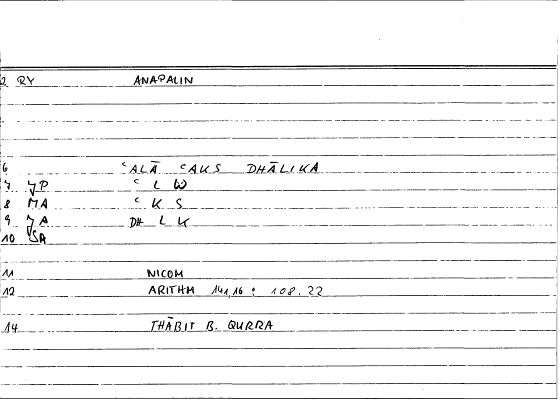 2 RY ANAPALIN
6 ᶜALĀ ᶜAKS DHĀLIKA
7 JP ᶜ L W
8 MA ᶜ K S
9 JA DH L K
10 SA
11 NICOM
12 ARITHM 141,16 : 108.22
14 THĀBIT B. QURRA